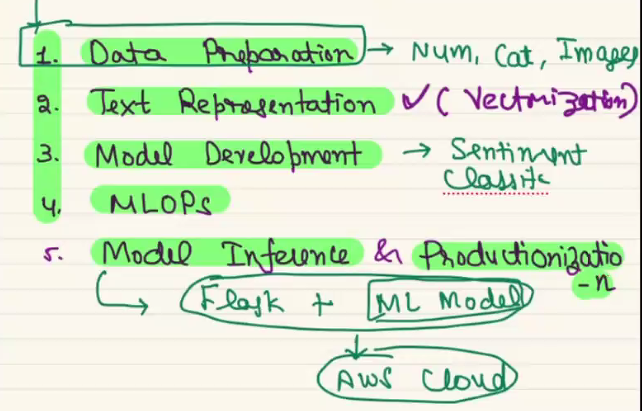 1. Data Preparation → Num, Cat, Images
2. Text Representation ✓ (Vectorization)
3. Model Development → Sentiment
Classific
4. MLOPs
5. Model Inference & Productionizatio
-n
Flask + ML Model
AWS Cloud